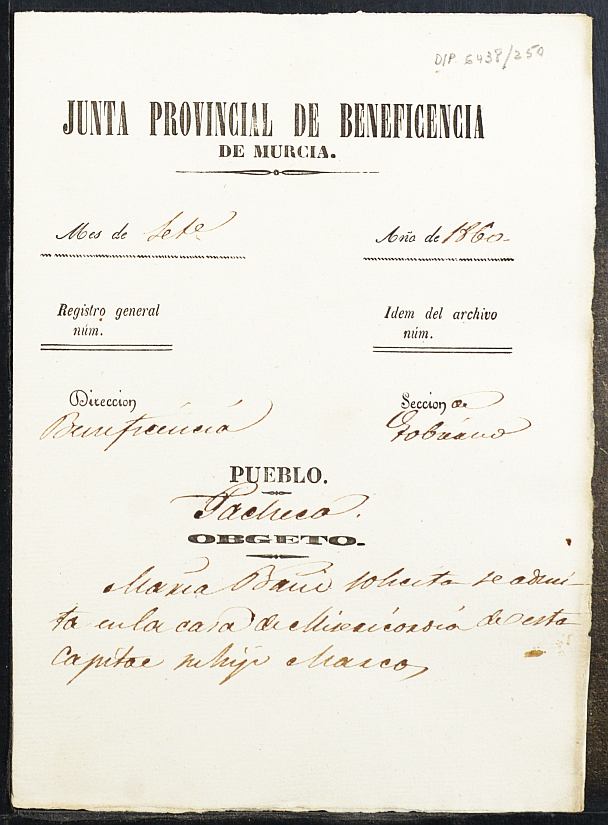 DIP. 6438/250
JUNTA PROVINCIAL DE BENEFICENCIA
DE MURCIA.
Mes de Sete
Año de 1860
Registro general
núm.
Idem del archivo
núm.
Direccion
Beneficencia
Seccion de
Gobierno
PUEBLO.
Pacheco.
OBGETO.
Maria solicita se admi-
ta en la casa de Misericordia de esta
Capital su hijo Marcos